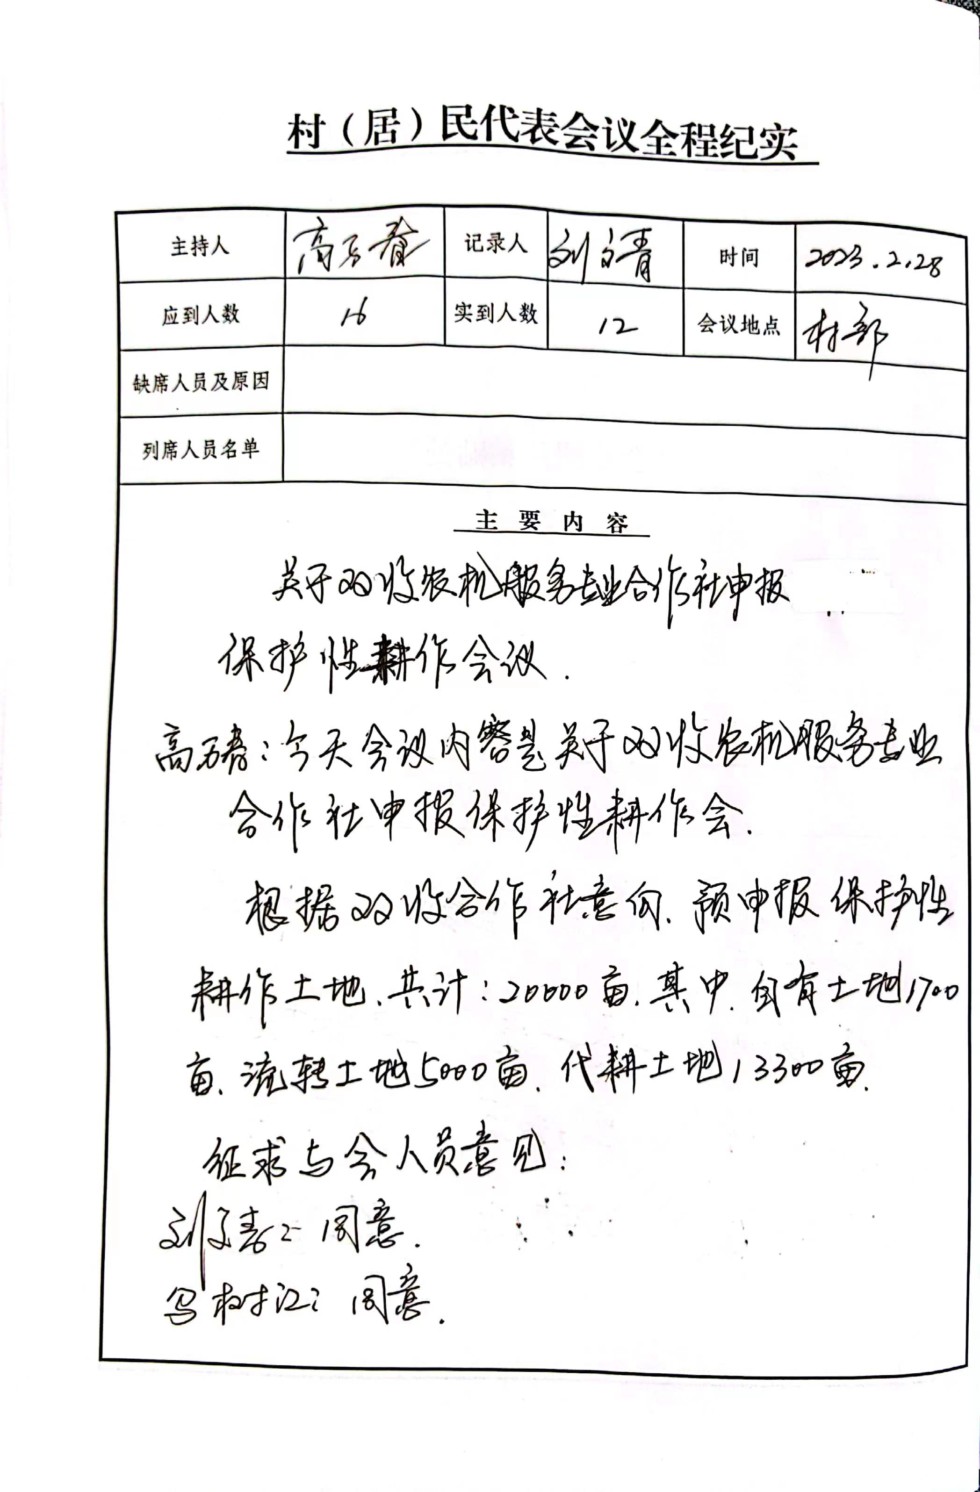 村（居）民代表会议全程纪实
主持人 高万春 记录人 刘文青 时间 2023.2.28
应到人数 16 实到人数 12 会议地点 村部
缺席人员及原因
列席人员名单
主要内容
关于双收农机服务专业合作社申报
保护性耕作会议.
高万春:今天会议内容是关于双收农机服务专业
合作社申报保护性耕作会.
根据双收合作社意向.预申报保护性
耕作土地.共计:20000亩.其中.自有土地1700
亩.流转土地5000亩.代耕土地13300亩.
征求与会人员意见:
刘文青:同意.
树江:同意.